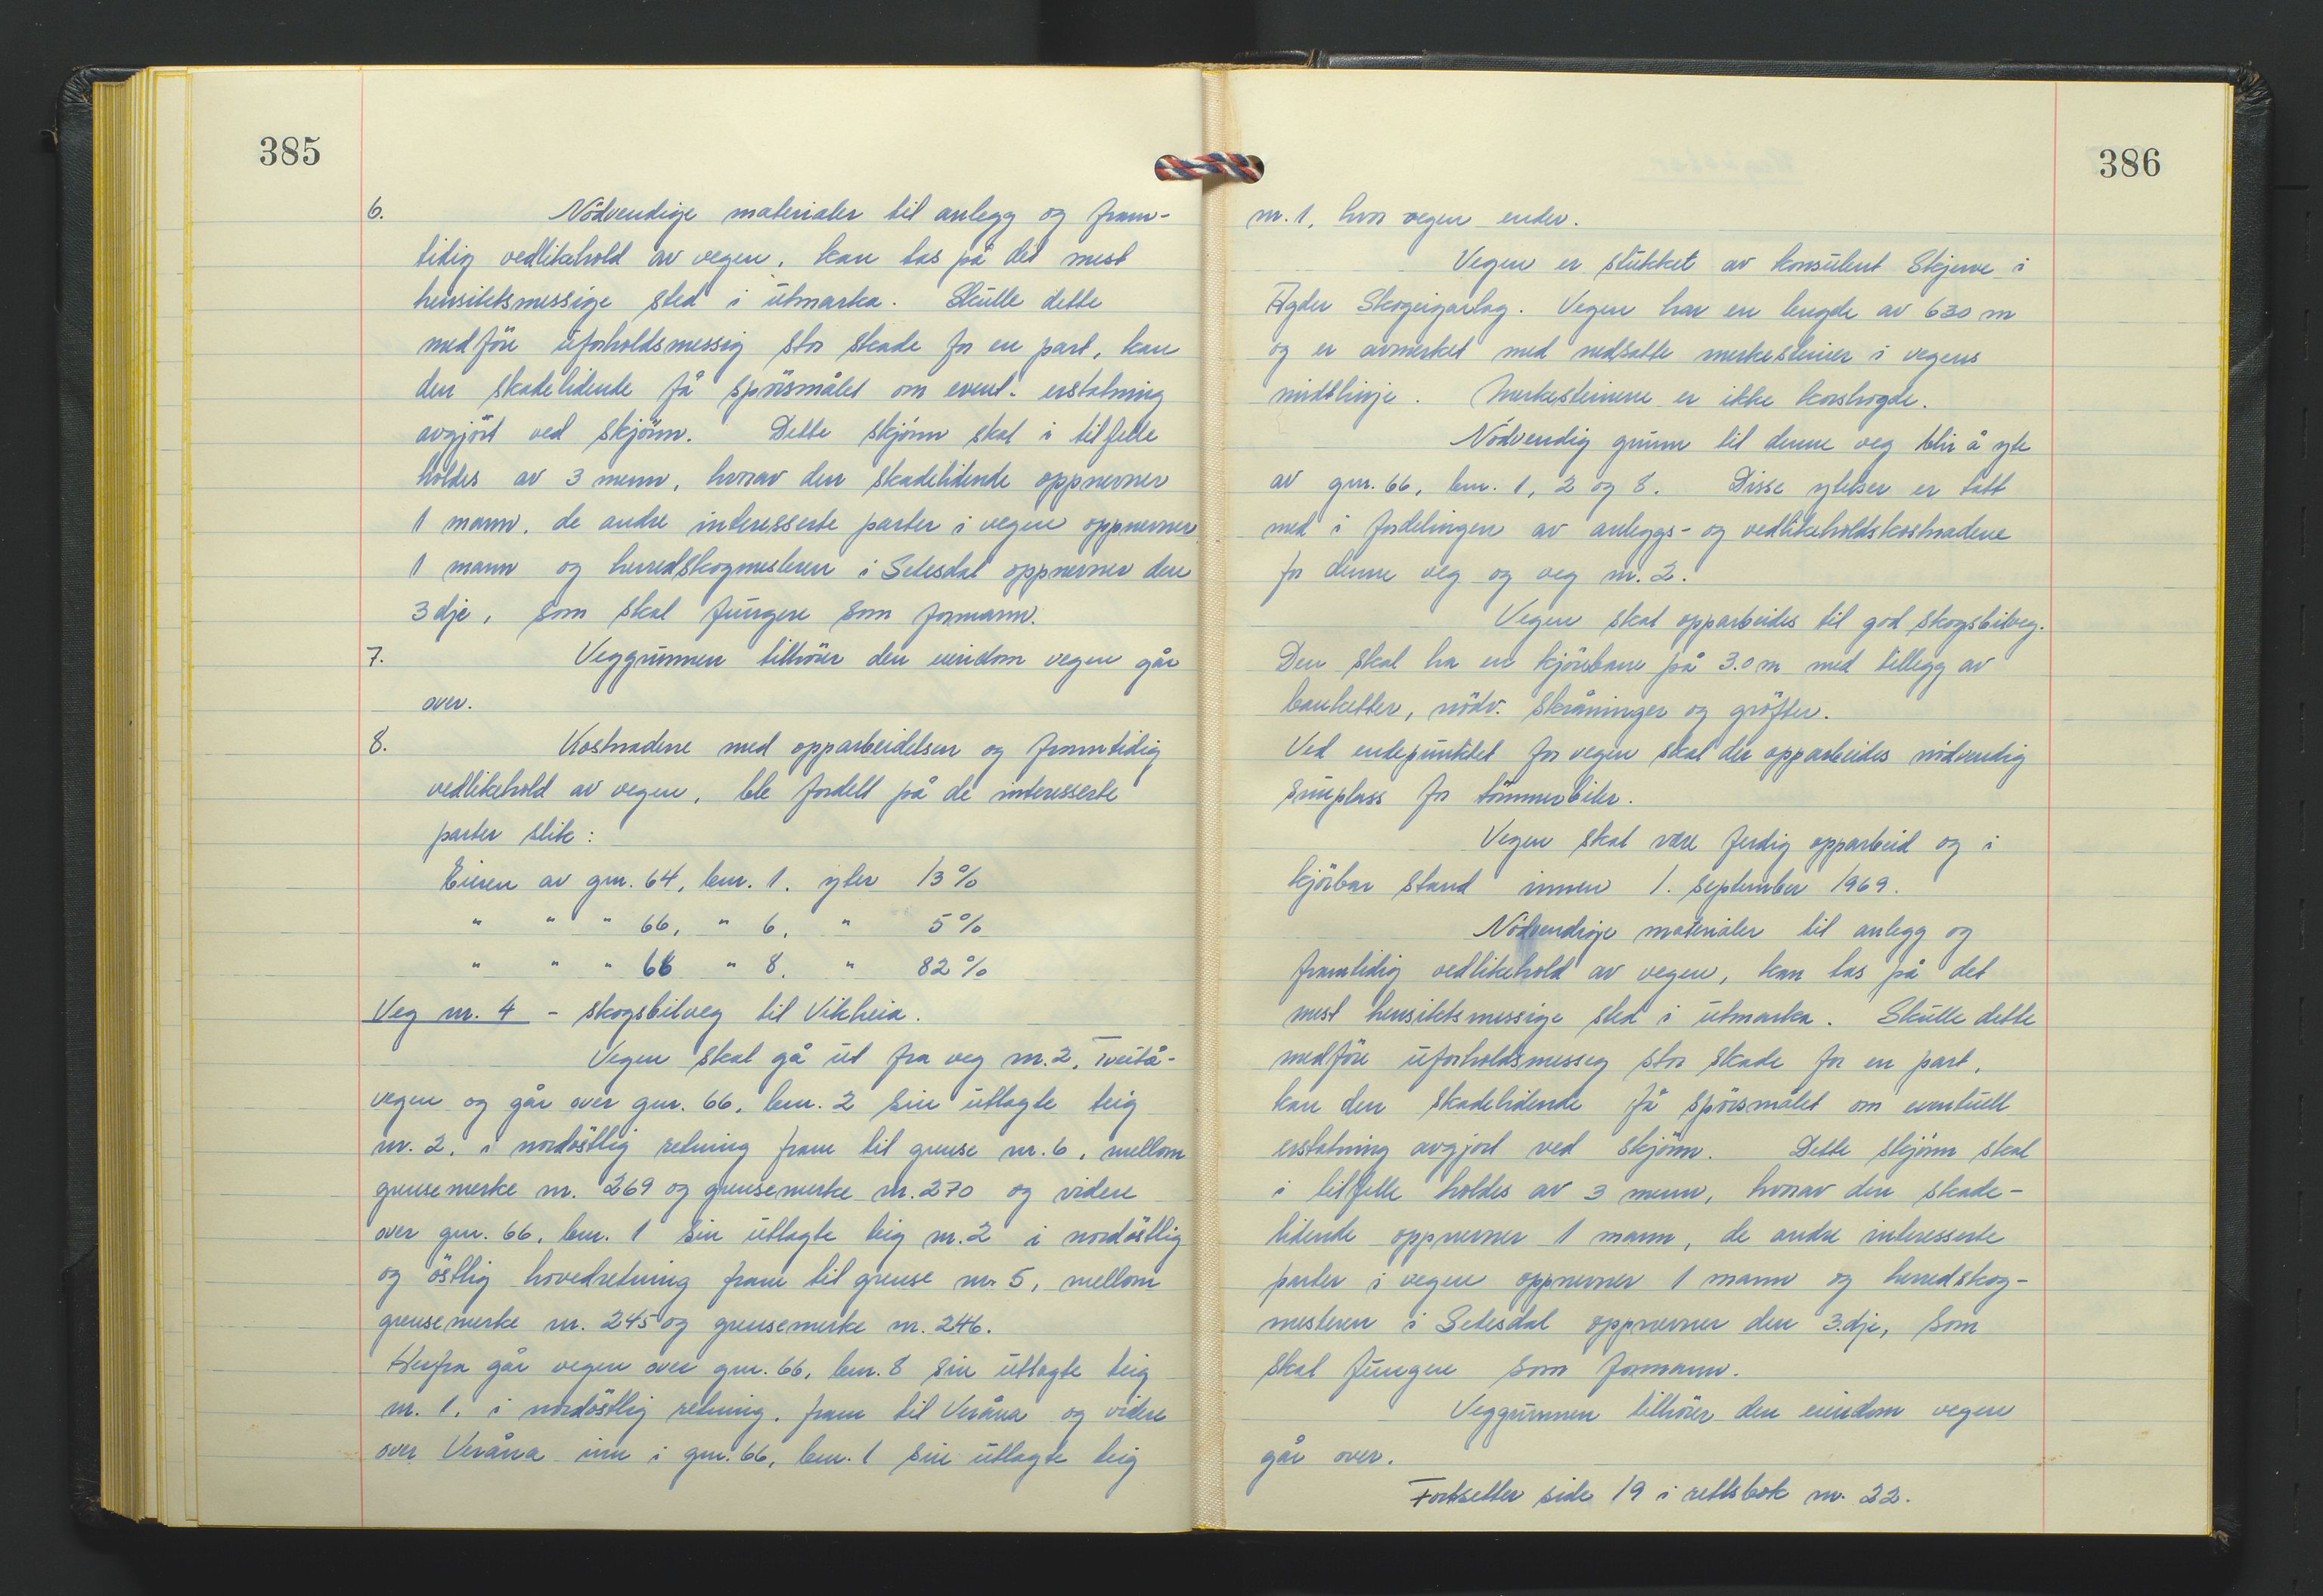 385
6. Nödvendige materialer til anlegg og fram-
tidig vedlikehold av vegen, kan tas på det mest
hensiktsmessige sted i utmarka. Skulle dette
medföre uforholdsmessig stor skade for en part, kan
den skadelidende få spörsmålet om event. erstatning
avgjört ved skjönn. Dette skjönn skal i tilfelle
holdes av 3 menn, hvorav den skadelidende oppnevner
1 mann, de andre interesserte parter i vegen oppnevner
1 mann og herredskogmesteren i Setesdal oppnevner den
3dje, som skal fungere som formann.
7. Veggrunnen tilhörer den eiendom vegen går
over.
8. Kostnadene med opparbeidelsen og framtidig
vedlikehold av vegen, ble fordelt på de interesserte
parter slik:
Eieren av gnr. 64, bnr. 1. yter 13%
" " " 66, " 6. " 5%
" " " 66 " 8. " 82%
Veg nr. 4 - skogsbilveg til Vikheia.
Vegen skal gå ut fra veg nr. 2, Tveitå-
vegen og går over gnr. 66, bnr. 2 sin utlagte teig
nr. 2, i nordöstlig retning fram til grense nr. 6, mellom
grensemerke nr. 269 og grensemerke nr. 270 og videre
over gnr. 66, bnr. 1 sin utlagte teig nr. 2 i nordöstlig
og östlig hovedretning fram til grense nr. 5, mellom
grensemerke nr. 245 og grensemerke nr. 246.
Herfra går vegen over gnr. 66, bnr. 8 sin utlagte teig
nr. 1, i nordöstlig retning, fram til Veråna og videre
over Veråna inn i gnr. 66, bnr. 1 sin utlagte teig
386
nr. 1, hvor vegen ender.
Vegen er stukket av konsulent Skjerve i
Agder Skogeigarlag. Vegen har en lengde av 630 m
og er avmerket med nedsatte merkesteiner i vegens
midtlinje. Merkesteinene er ikke korshogde.
Nödvendig grunn til denne veg blir å yte
av gnr. 66, bnr. 1, 2 og 8. Disse ytelser er tatt
med i fordelingen av anleggs- og vedlikeholdskostnadene
for denne veg og veg nr. 2.
Vegen skal opparbeides til god skogsbilveg.
Den skal ha en kjörebane på 3.0 m med tillegg av
banketter, nödv. skråninger og gröfter.
Ved endepunktet for vegen skal der opparbeides nödvendig
snuplass for tömmerbiler.
Vegen skal være ferdig opparbeid og i
kjörbar stand innen 1. september 1969.
Nödvendige materialer til anlegg og
framtidig vedlikehold av vegen, kan tas på det
mest hensiktsmessige sted i utmarka. Skulle dette
medföre uforholdsmesseg stor skade for en part,
kan den skadelidende få spörsmålet om eventuell
erstatning avgjort ved skjönn. Dette skjönn skal
i tilfelle holdes av 3 menn, hvorav den skade-
lidende oppnevner 1 mann, de andre interesserte
parter i vegen oppnevner 1 mann og herredskog-
mesteren i Setesdal oppnevner den 3.dje, som
skal fungere som formann.
Veggrunnen tilhörer den eiendom vegen
går over.
Fortsetter side 19 i rettsbok nr. 22.